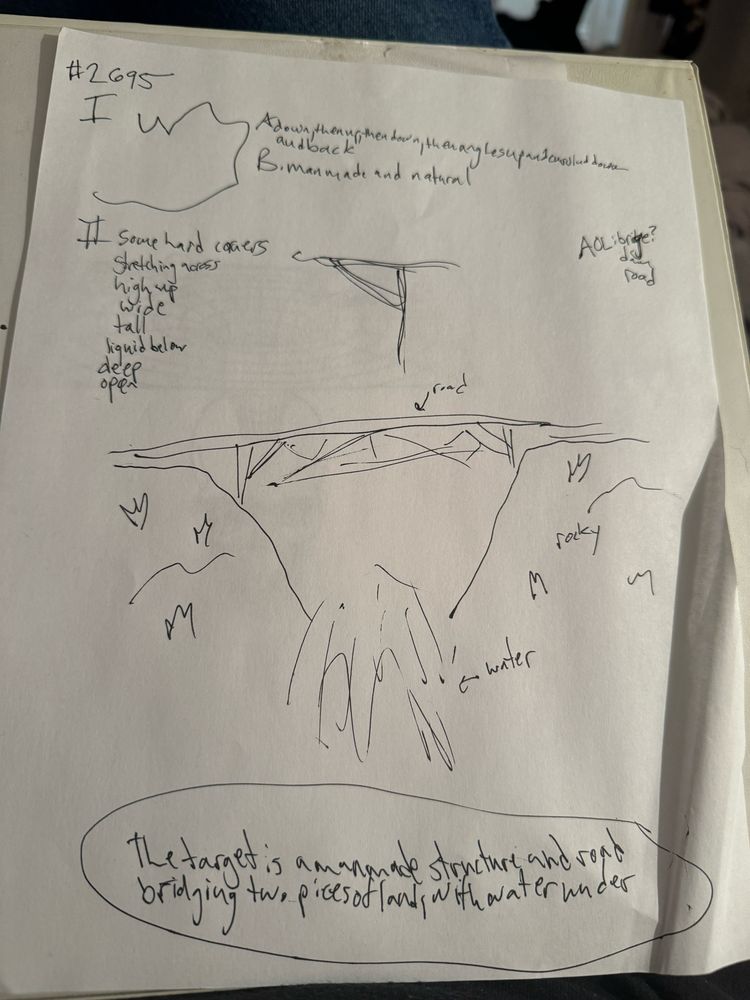 #2695
I
A down, then up, then down, then angles up and curved down
and back
B. manmade and natural
II some hard corners
stretching across
high up
wide
tall
liquid below
deep
open
AOL: bridge?
road
road
rocky
water
The target is a manmade structure and road
bridging two pices of land, with water under